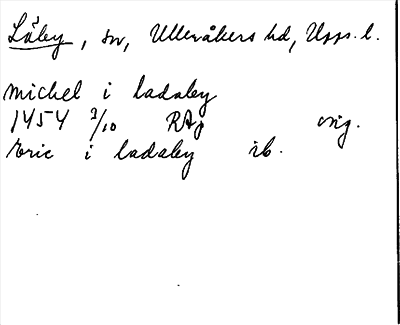 Låby, sn, Ulleråkers hd, Upps. l.
michel i ladaby
1454 2/10 RAp orig.
Eric i ladaby ib.